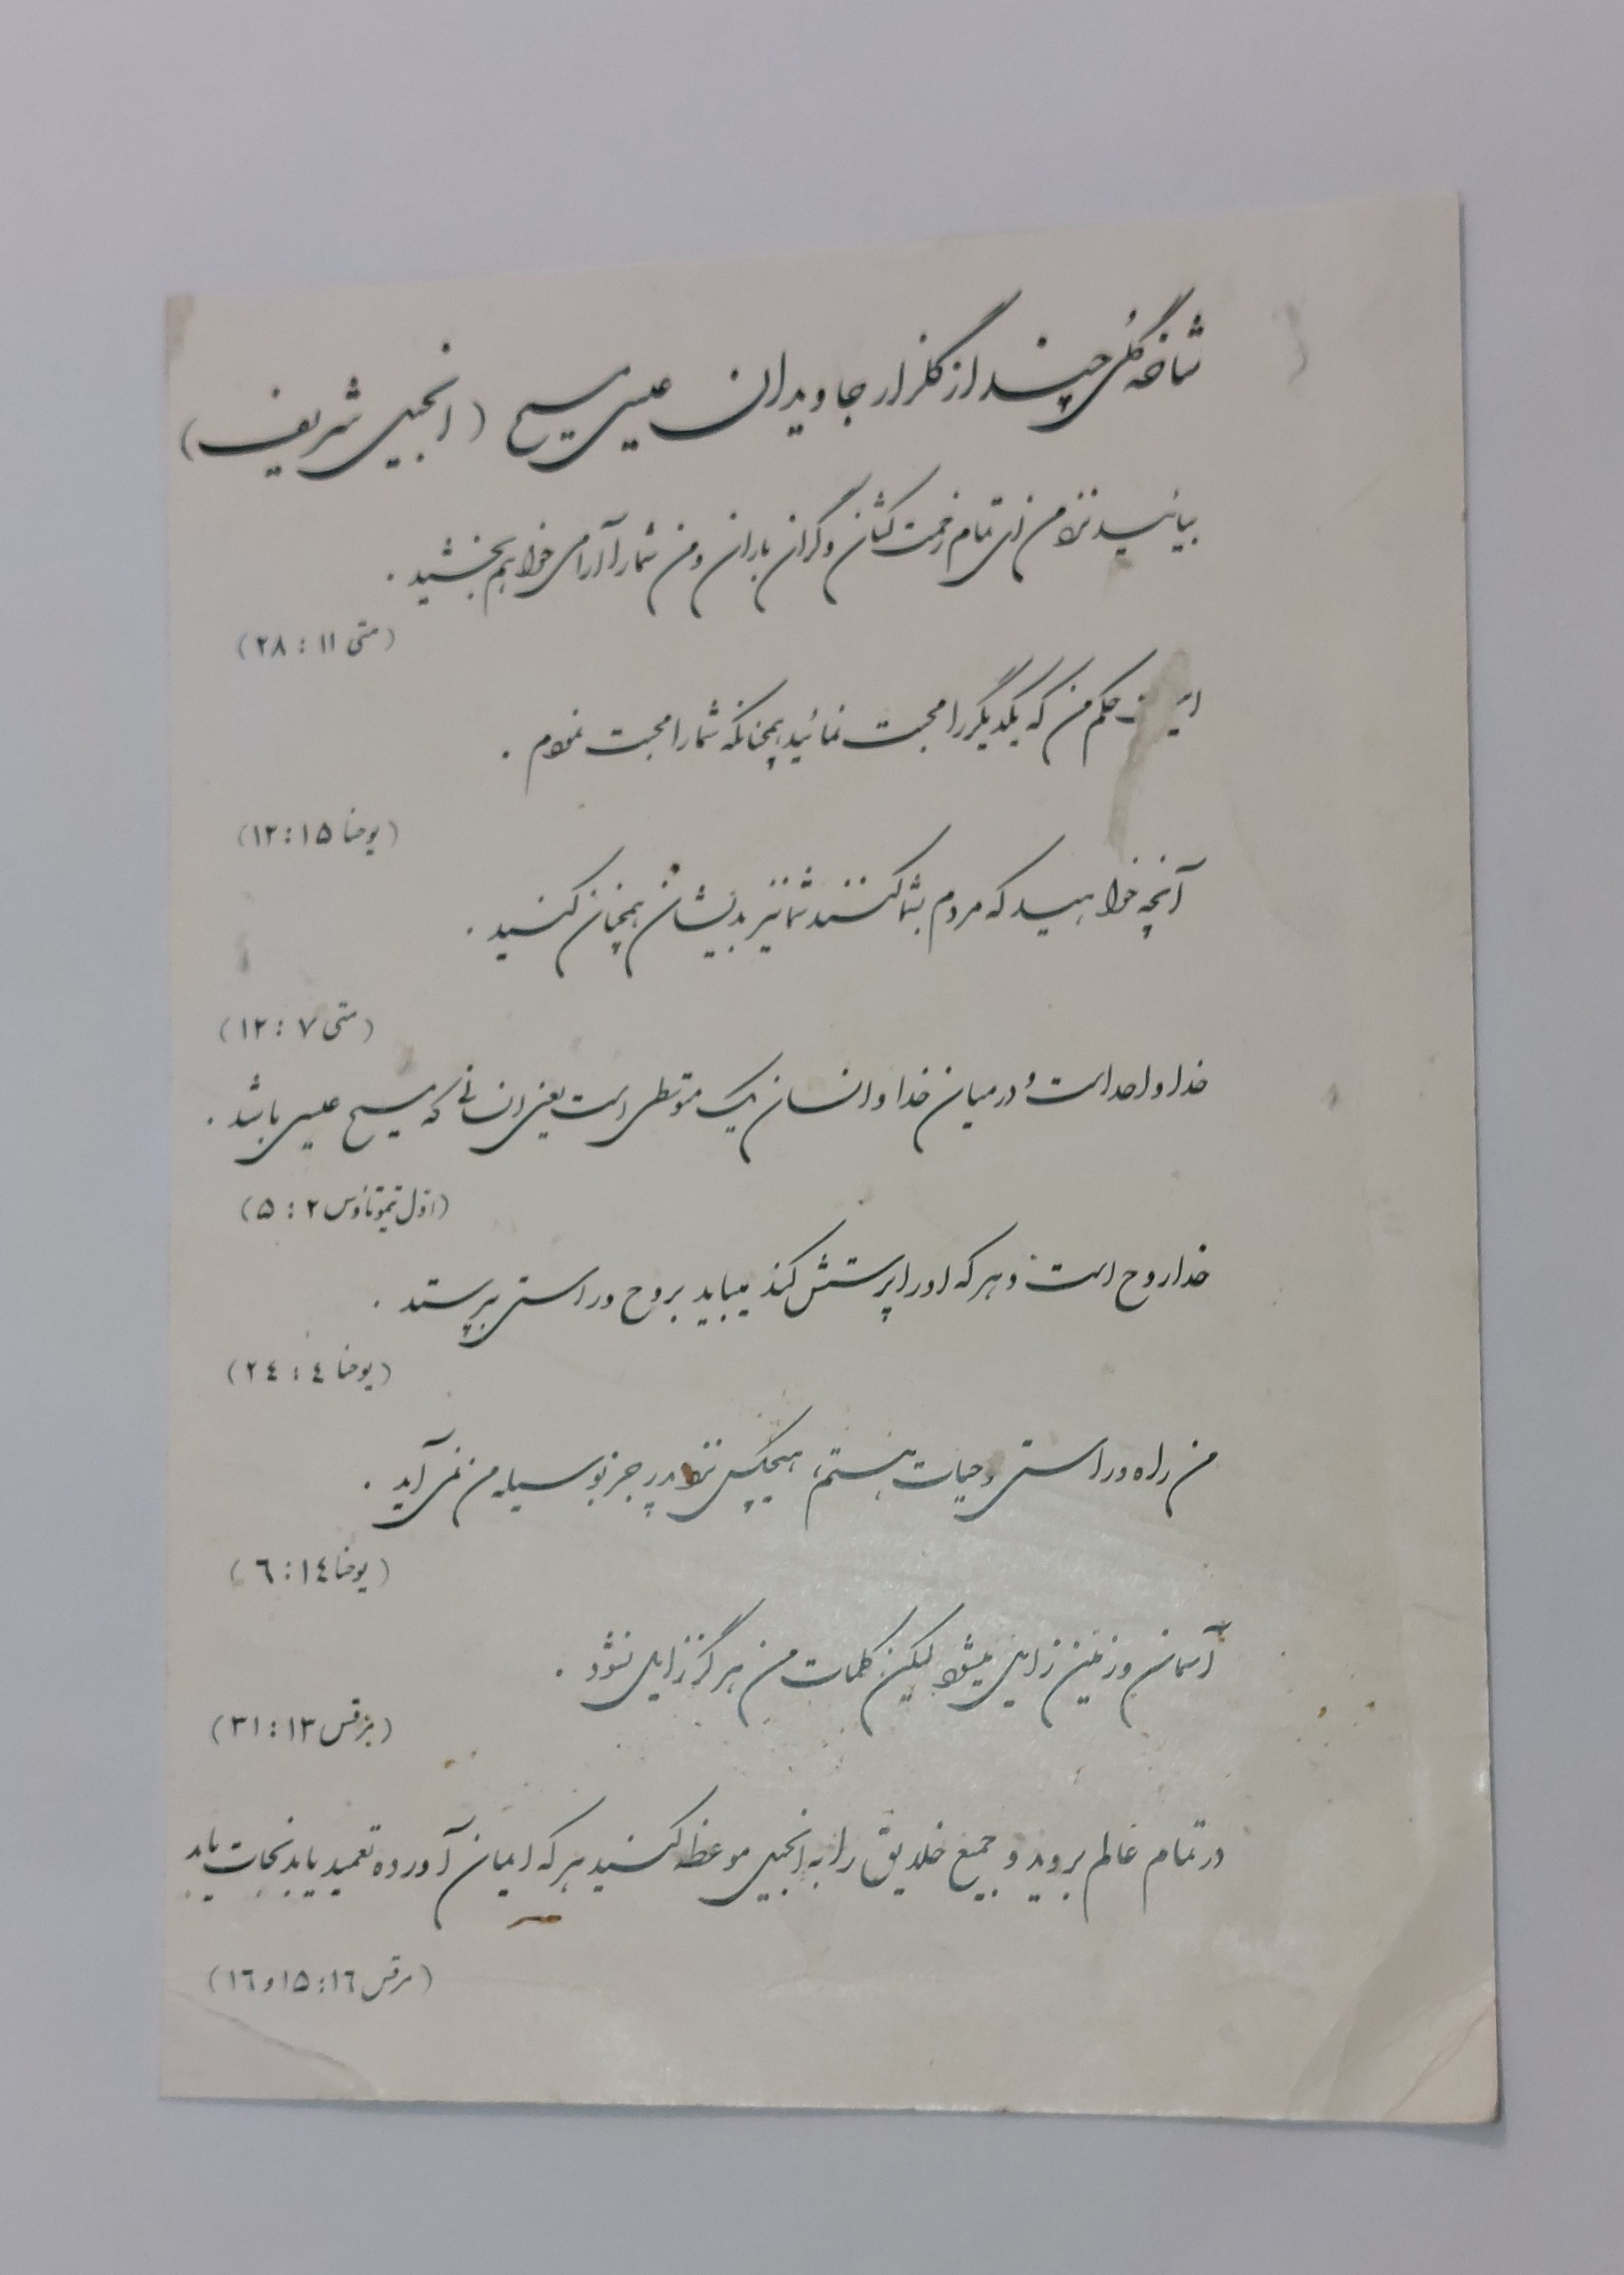 شاخه گلی چند از گلزار جاویدان عیسی مسیح (انجیل شریف)
بیائید نزد من ای تمام زحمت کشان و گران باران و من شما را آرامی خواهم بخشید .
(متی ۱۱ : ۲۸)
اینست حکم من که یکدیگر را محبت نمائید همچنانکه شما را محبت نمودم .
(یوحنا ۱۵ : ۱۲)
آنچه خواهید که مردم بشما کنند شما نیز بدیشان همچنان کنید .
(متی ۷ : ۱۲)
خدا واحد است و در میان خدا و انسان یک متوسطی است یعنی انسانی که مسیح عیسی باشد .
(اول تیموتاوس ۲ : ۵)
خدا روح است و هر که او را پرستش کند میباید بروح و راستی بپرستد .
(یوحنا ٤ : ۲٤)
من راه و راستی و حیات هستم، هیچکس نزد پدر جز بوسیله من نمی آید .
(یوحنا ۱٤ : ٦)
آسمان و زمین زایل میشود لیکن کلمات من هرگز زایل نشود .
(مرقس ۱۳ : ۳۱)
در تمام عالم بروید و جمیع خلایق را به انجیل موعظه کنید هر که ایمان آورده تعمید یابد نجات یابد
(مرقس ۱٦ : ۱۵ و ۱٦)